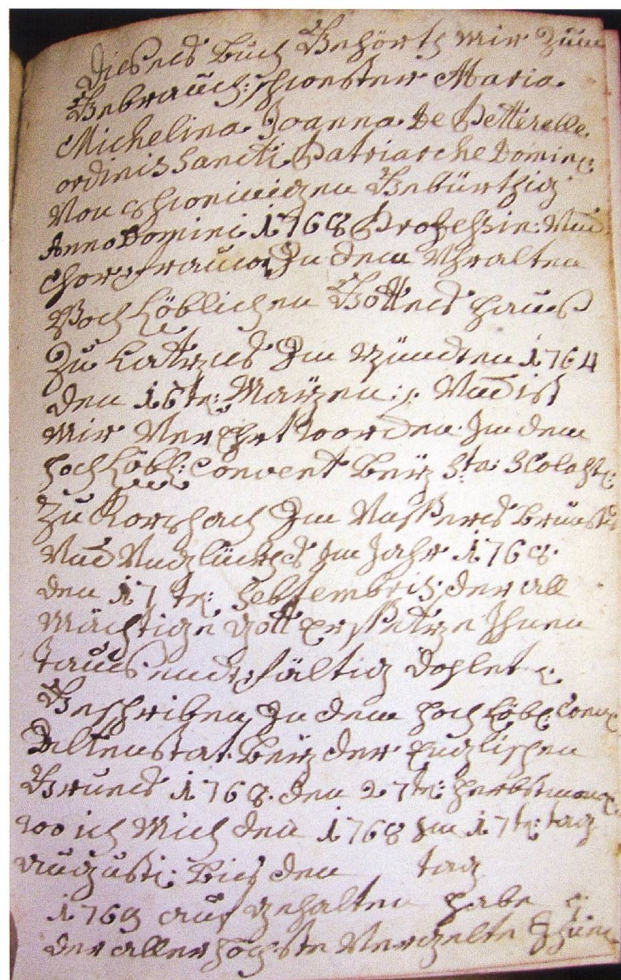 Dieses Buch Gehörth mir Zum
Gebrauch: schwester Maria
Michelina Joanna De Betterelle.
ordinis Sancti Patriarche Domini:
Von Gebürthig
Anno Domini 1768 Profession: Und
Chorfrauw In dem Uhralten
Hoch Löblichen Gottes haus
Zu Katzis Im Pündten 1764
den 16te: Märtzen: Und ist
mir Verehrt worden In dem
hoch Löbl: Convent beÿ Sta: Scolast:
zu Rorschach Im
Und Im Jahr 1768
den 17te: Septembris: der all
Mächtige Gott Ersetze Ihnen
tausendtfältig
Geschriben In dem hoch Löbl: Conv:
Altenstat beÿ der Englischen
Gruess 1768 den 27te: herbstmon:
wo ich Mich den 1768 Im 17te: tag
Augusti: bies den tag
1769 auf gehalten habe
der aller höchste Vergelte Ihnen